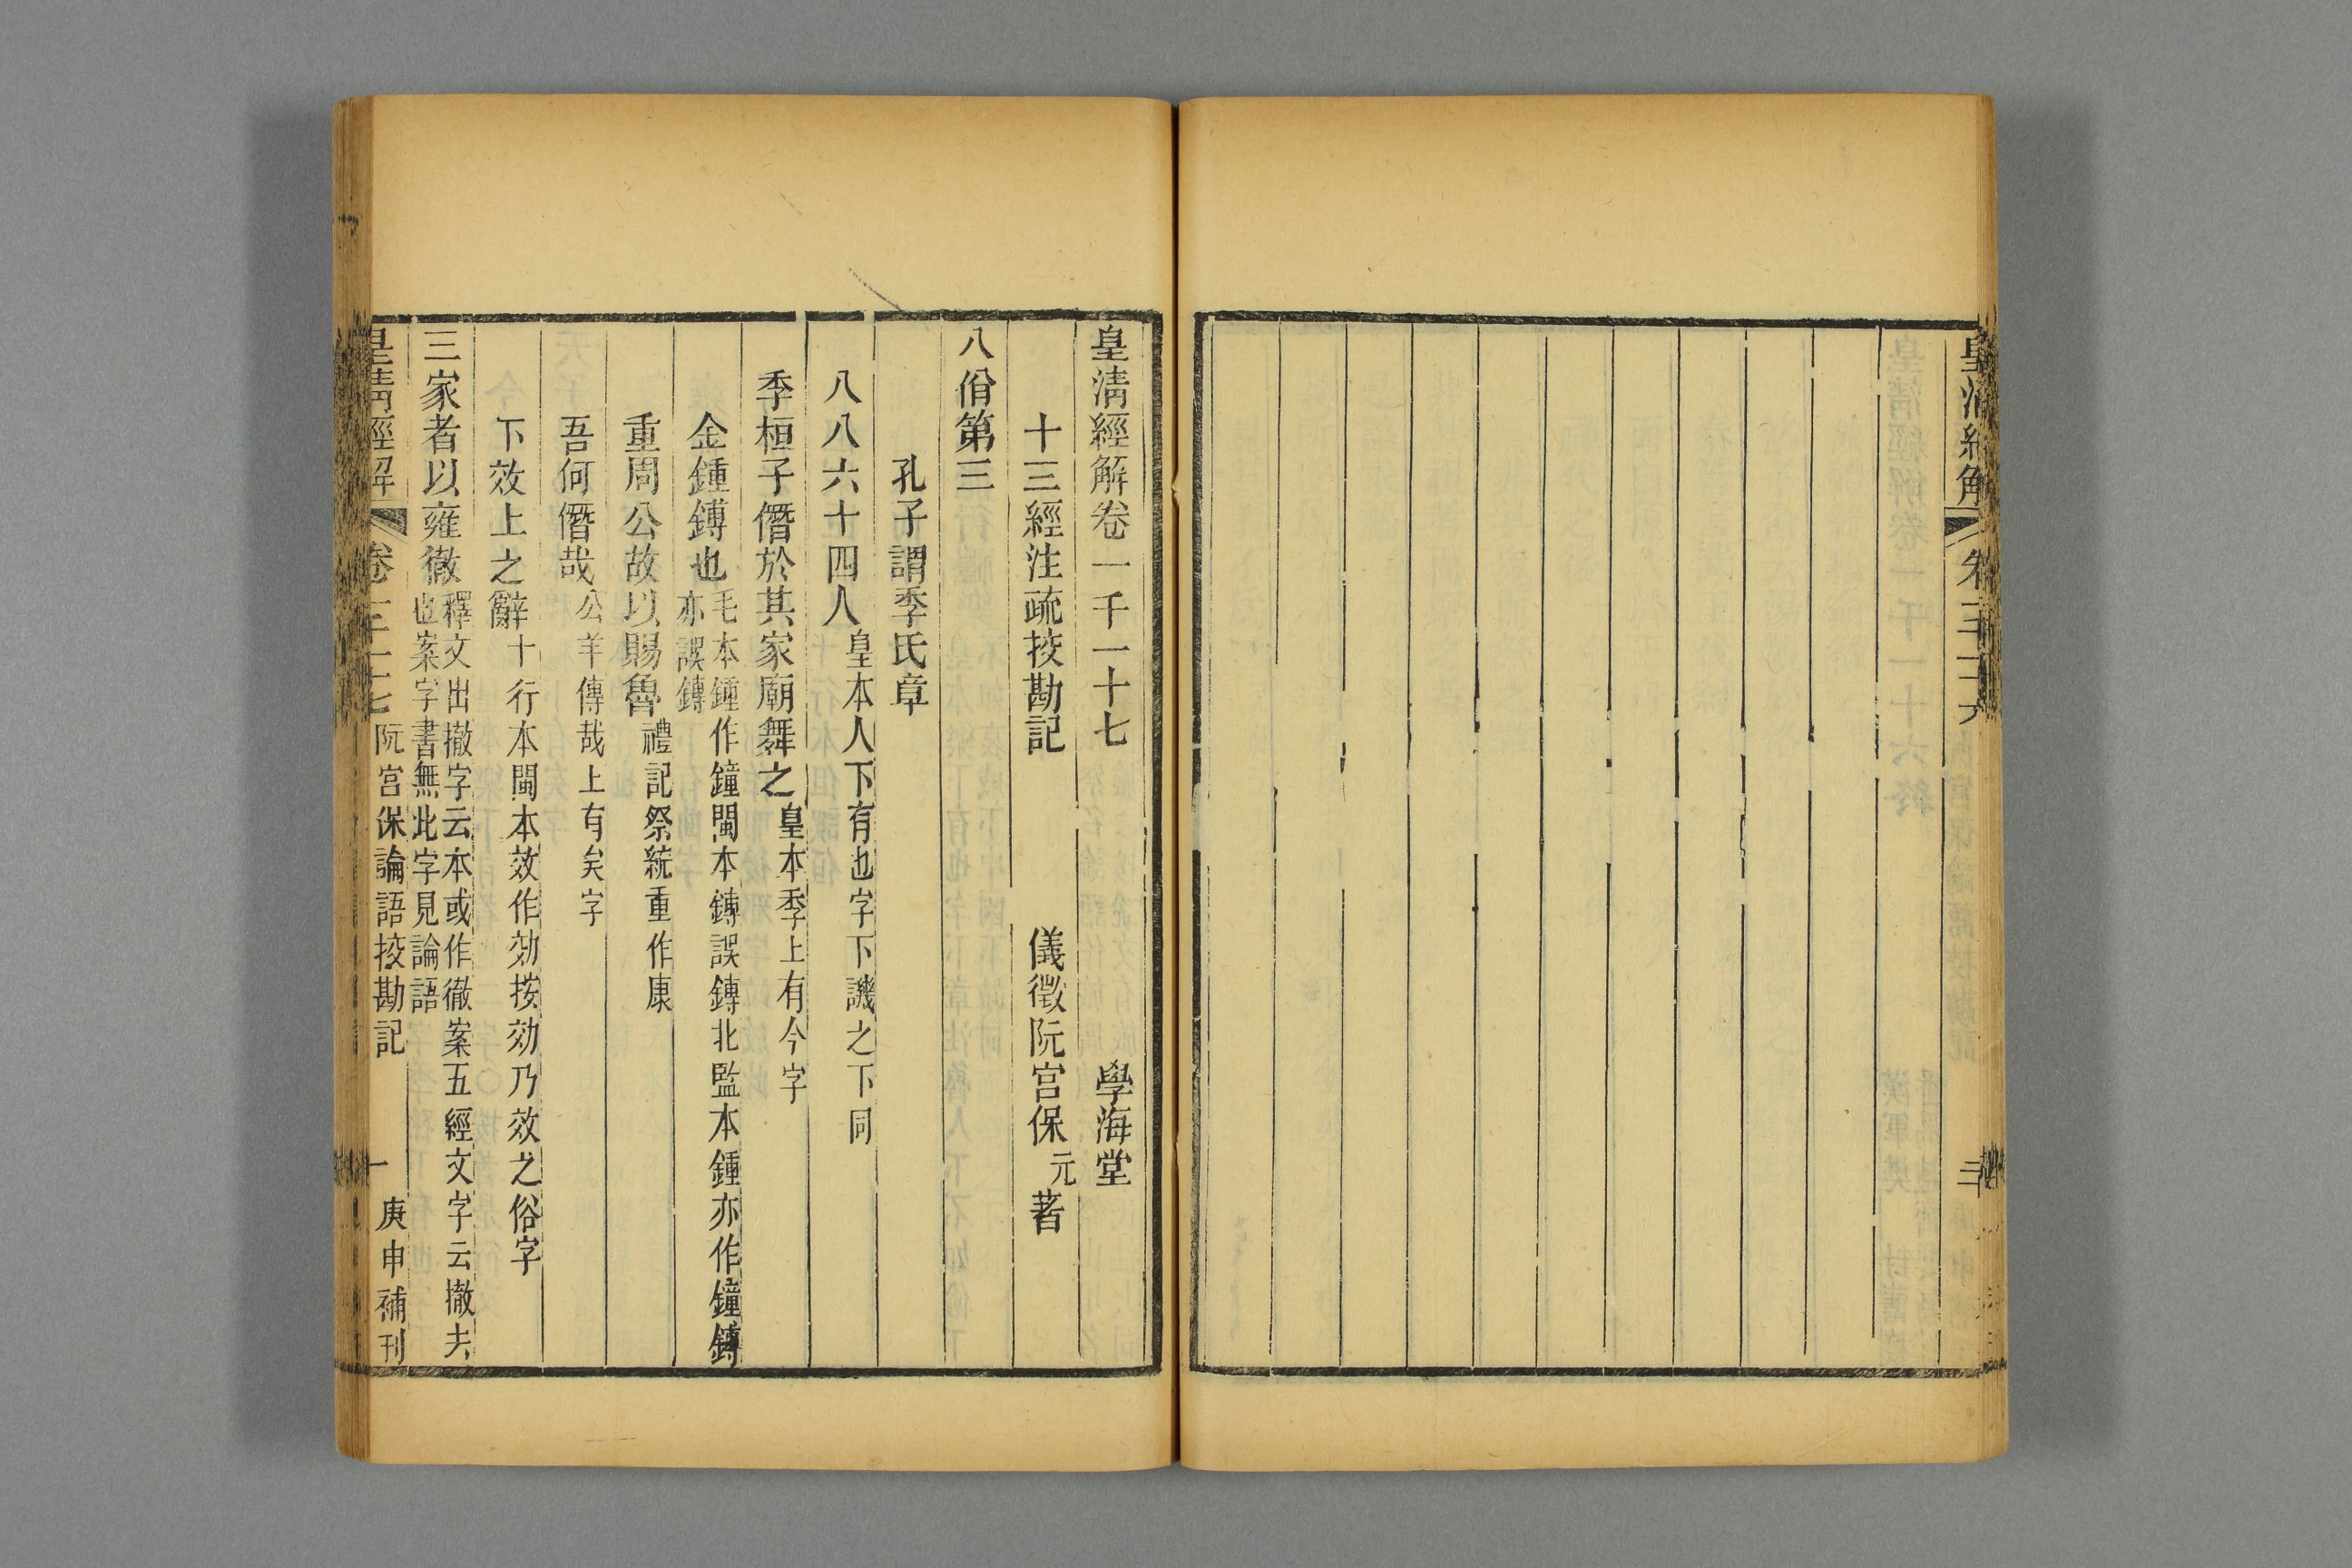 皇清經解
三
皇清經解卷一千一十七
學海堂
十三經注疏挍勘記
儀徵阮宫保元著
八佾第三
孔子謂季氏章
八八六十四人皇本人下有也字下譏之下同
季桓子僭於其家廟舞之皇本季上有今字
金鍾鎛也毛本鍾作鐘閩本鎛誤鏄北監本鍾亦作鐘鎛
亦誤鏄
重周公故以賜魯禮記祭統重作康
吾何僭哉公羊傳哉上有矣字
下效上之辭十行本閩本效作効按効乃效之俗字
三家者以雍徹釋文出撤字云本或作徹案五經文字云撤去
也案字書無此字見論語
皇清經解
卷一千一十七
阮宫保論語挍勘記
一
庚申補刊